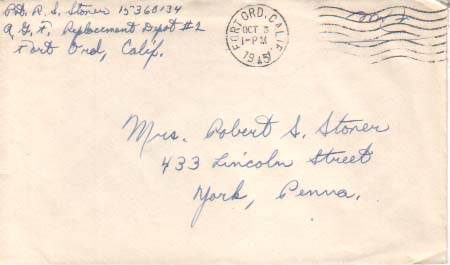 Pvt. R. S. Stoner 15360134
A.G.F. Replacement Depot #2
Fort Ord, Calif.
FORT ORD, CALIF.
OCT 3
1-PM
1945
Free
Mrs. Robert S. Stoner
433 Lincoln Street
York, Penna.